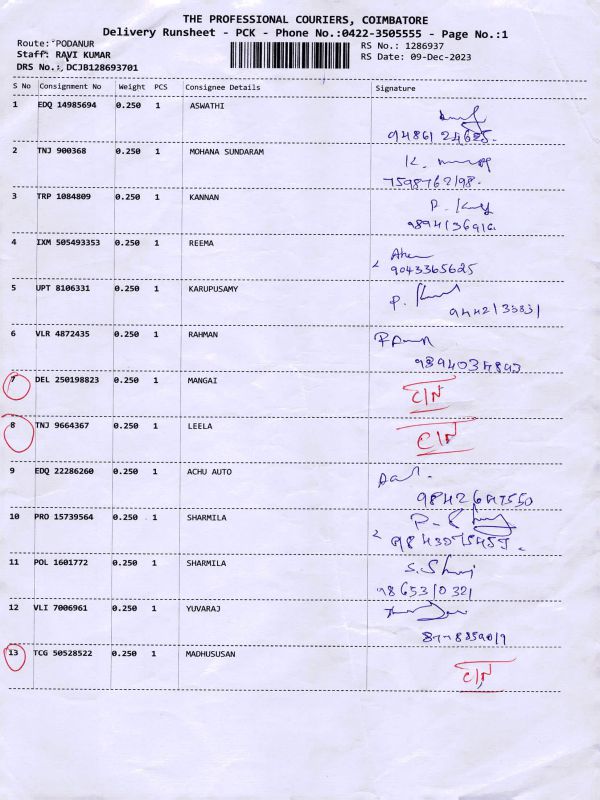 THE PROFESSIONAL COURIERS, COIMBATORE
Delivery Runsheet - PCK - Phone No.:0422-3505555 - Page No.:1
Route: PODANUR
RS No.: 1286937
Staff: RAVI KUMAR
RS Date: 09-Dec-2023
DRS No.: DCJB128693701
S No Consignment No Weight PCS Consignee Details Signature
1 EDQ 14985694 0.250 1 ASWATHI
2 TNJ 900368 0.250 1 MOHANA SUNDARAM
K.
7598762198.
3 TRP 1084809 0.250 1 KANNAN
P.
9894136916.
4 IXM 505493353 0.250 1 REEMA
9043365625
5 UPT 8106331 0.250 1 KARUPUSAMY
P.
6 VLR 4872435 0.250 1 RAHMAN
7 DEL 250198823 0.250 1 MANGAI
C/N
8 TNJ 9664367 0.250 1 LEELA
C/N
9 EDQ 22286260 0.250 1 ACHU AUTO
10 PRO 15739564 0.250 1 SHARMILA
11 POL 1601772 0.250 1 SHARMILA
12 VLI 7006961 0.250 1 YUVARAJ
13 TCG 50528522 0.250 1 MADHUSUSAN
C/N